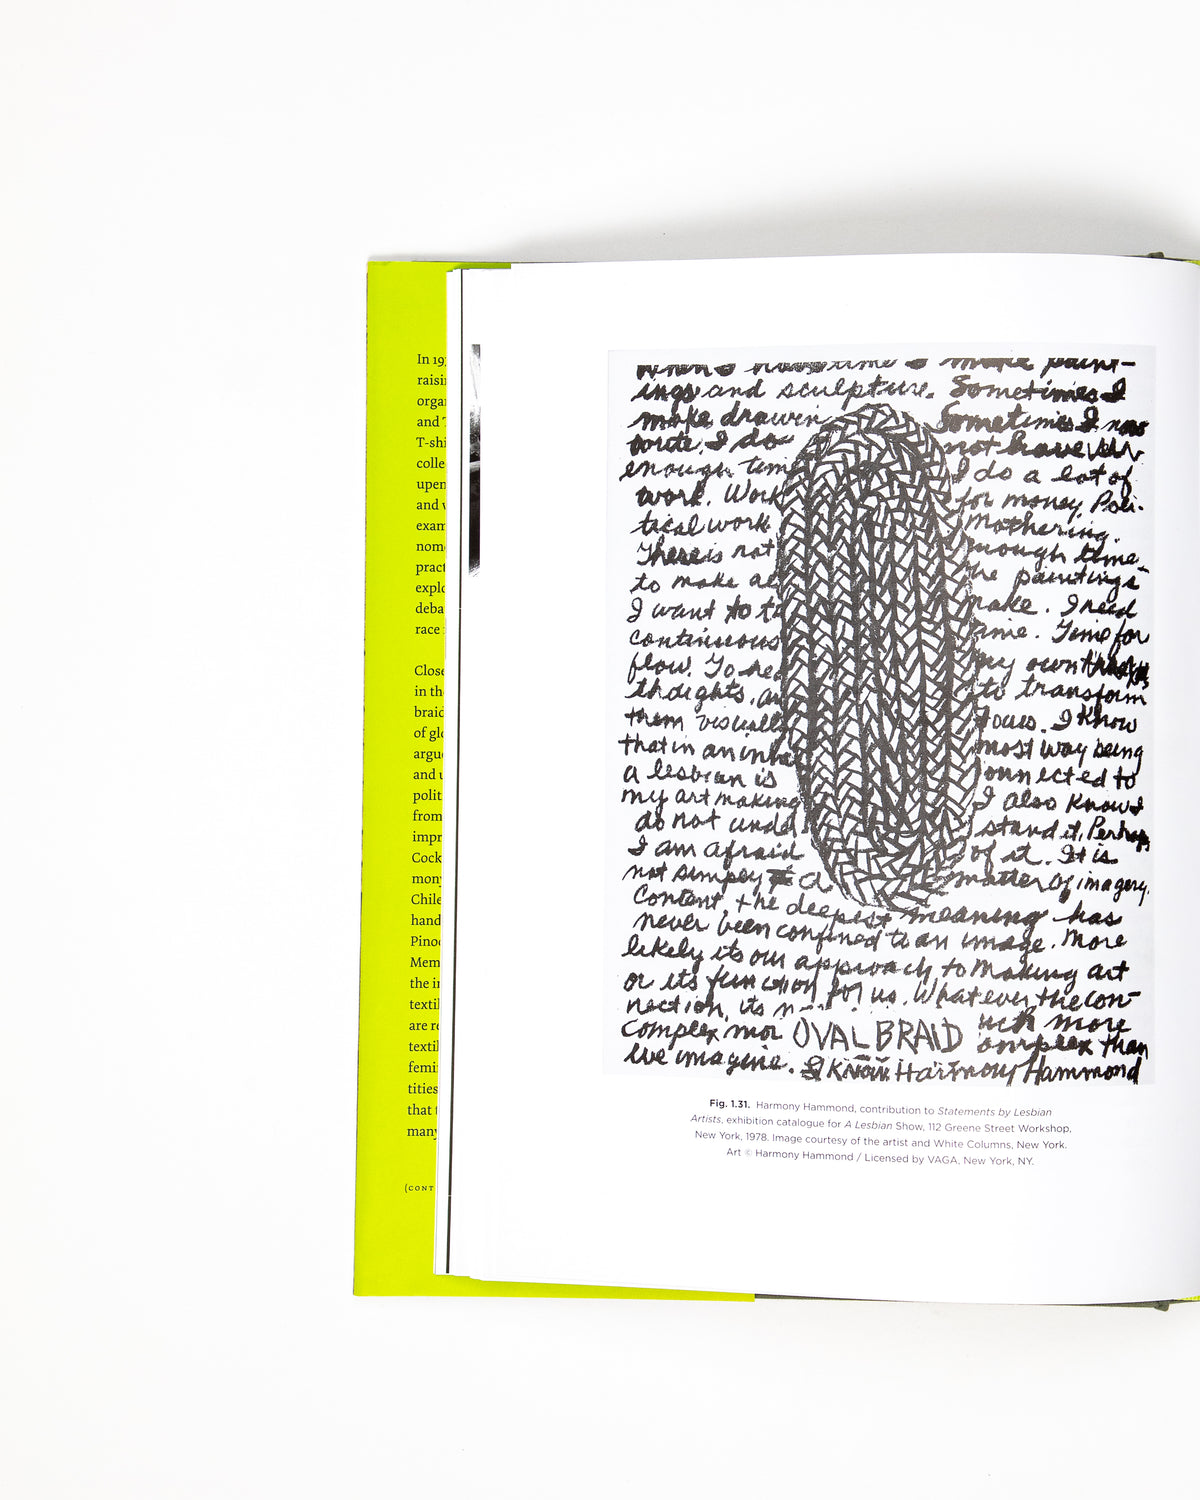 In 19
raisi
orga
and
T-shi
colle
upen
and
exam
nom
pract
explo
deba
race
Close
in th
braid
of glo
argu
and u
polit
from
impr
Cock
mon
Chile
hand
Pino
Mem
the i
textil
are re
textil
femi
tities
that
many
(CONT
When I have time I make paint-
ings and sculpture. Sometimes I
make drawin Sometimes I now
write. I do not have
enough time I do a lot of
work. Work for money, Poli-
tical work Mothering.
There is not enough time
to make all the paintings
I want to make. I need
continuous time. Time for
flow. To hea my own
thoughts, an to transform
them visually I know
that in an in most way being
a lesbian is connected to
my art making I also know I
do not under stand it, Perhaps
I am afraid of it. It is
not simply a matter of imagery,
content, the deepest meaning has
never been confined to an image. More
likely its our approach to making art
or its function for us. Whatever the con-
nection, its much more
complex mor OVAL BRAID complex than
we imagine. I KNOW. Harmony Hammond
Fig. 1.31. Harmony Hammond, contribution to Statements by Lesbian
Artists, exhibition catalogue for A Lesbian Show, 112 Greene Street Workshop,
New York, 1978. Image courtesy of the artist and White Columns, New York.
Art © Harmony Hammond / Licensed by VAGA, New York, NY.